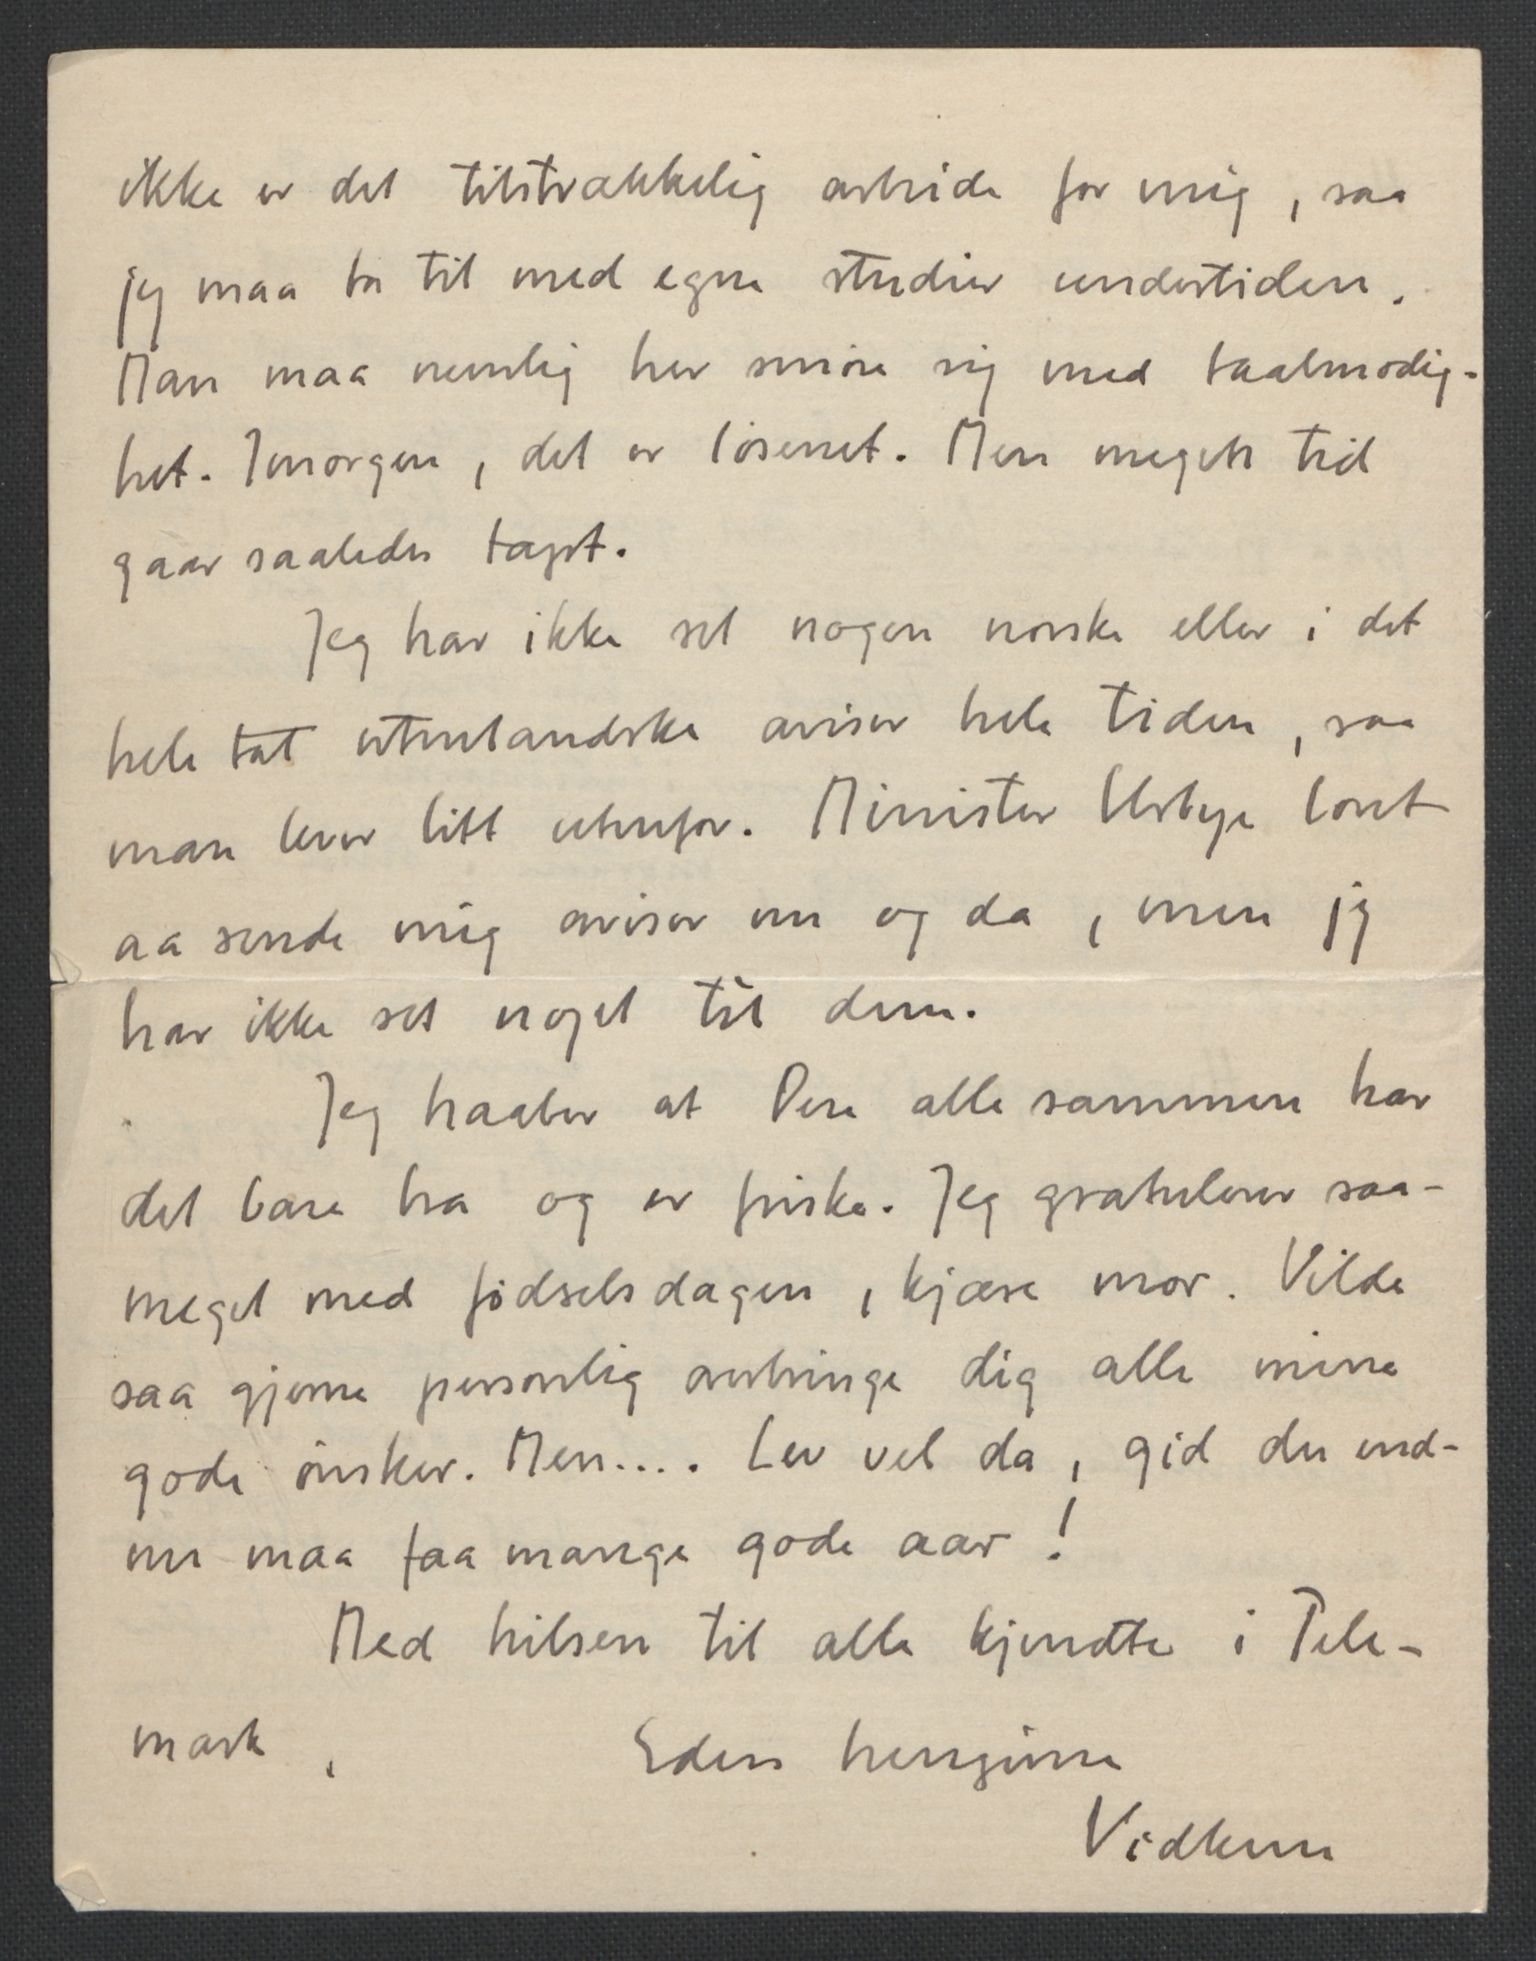 ikke er det tilstrækkelig arbeide for mig, saa
jeg maa ta til med egne studier undertiden.
Man maa nemlig her smøre sig med taalmodig-
het. Imorgen, det er løsenet. Men megen tid
gaar saaledes tapt.
Jeg har ikke set nogen norske eller i det
hele tat utenlandske aviser hele tiden, saa
man lever litt utenfor. Minister Urbye lovet
aa sende mig aviser nu og da, men jeg
har ikke set noget til dem.
Jeg haaber at Dere alle sammen har
det bare bra og er friske. Jeg gratulerer saa-
meget med fødselsdagen, kjære mor. Vilde
saa gjerne personlig overbringe dig alle mine
gode ønsker. Men.... Lev vel da, gid du end-
nu maa faa mange gode aar!
Med hilsen til alle kjendte i Tele-
mark, Eders hengivne
Vidkun